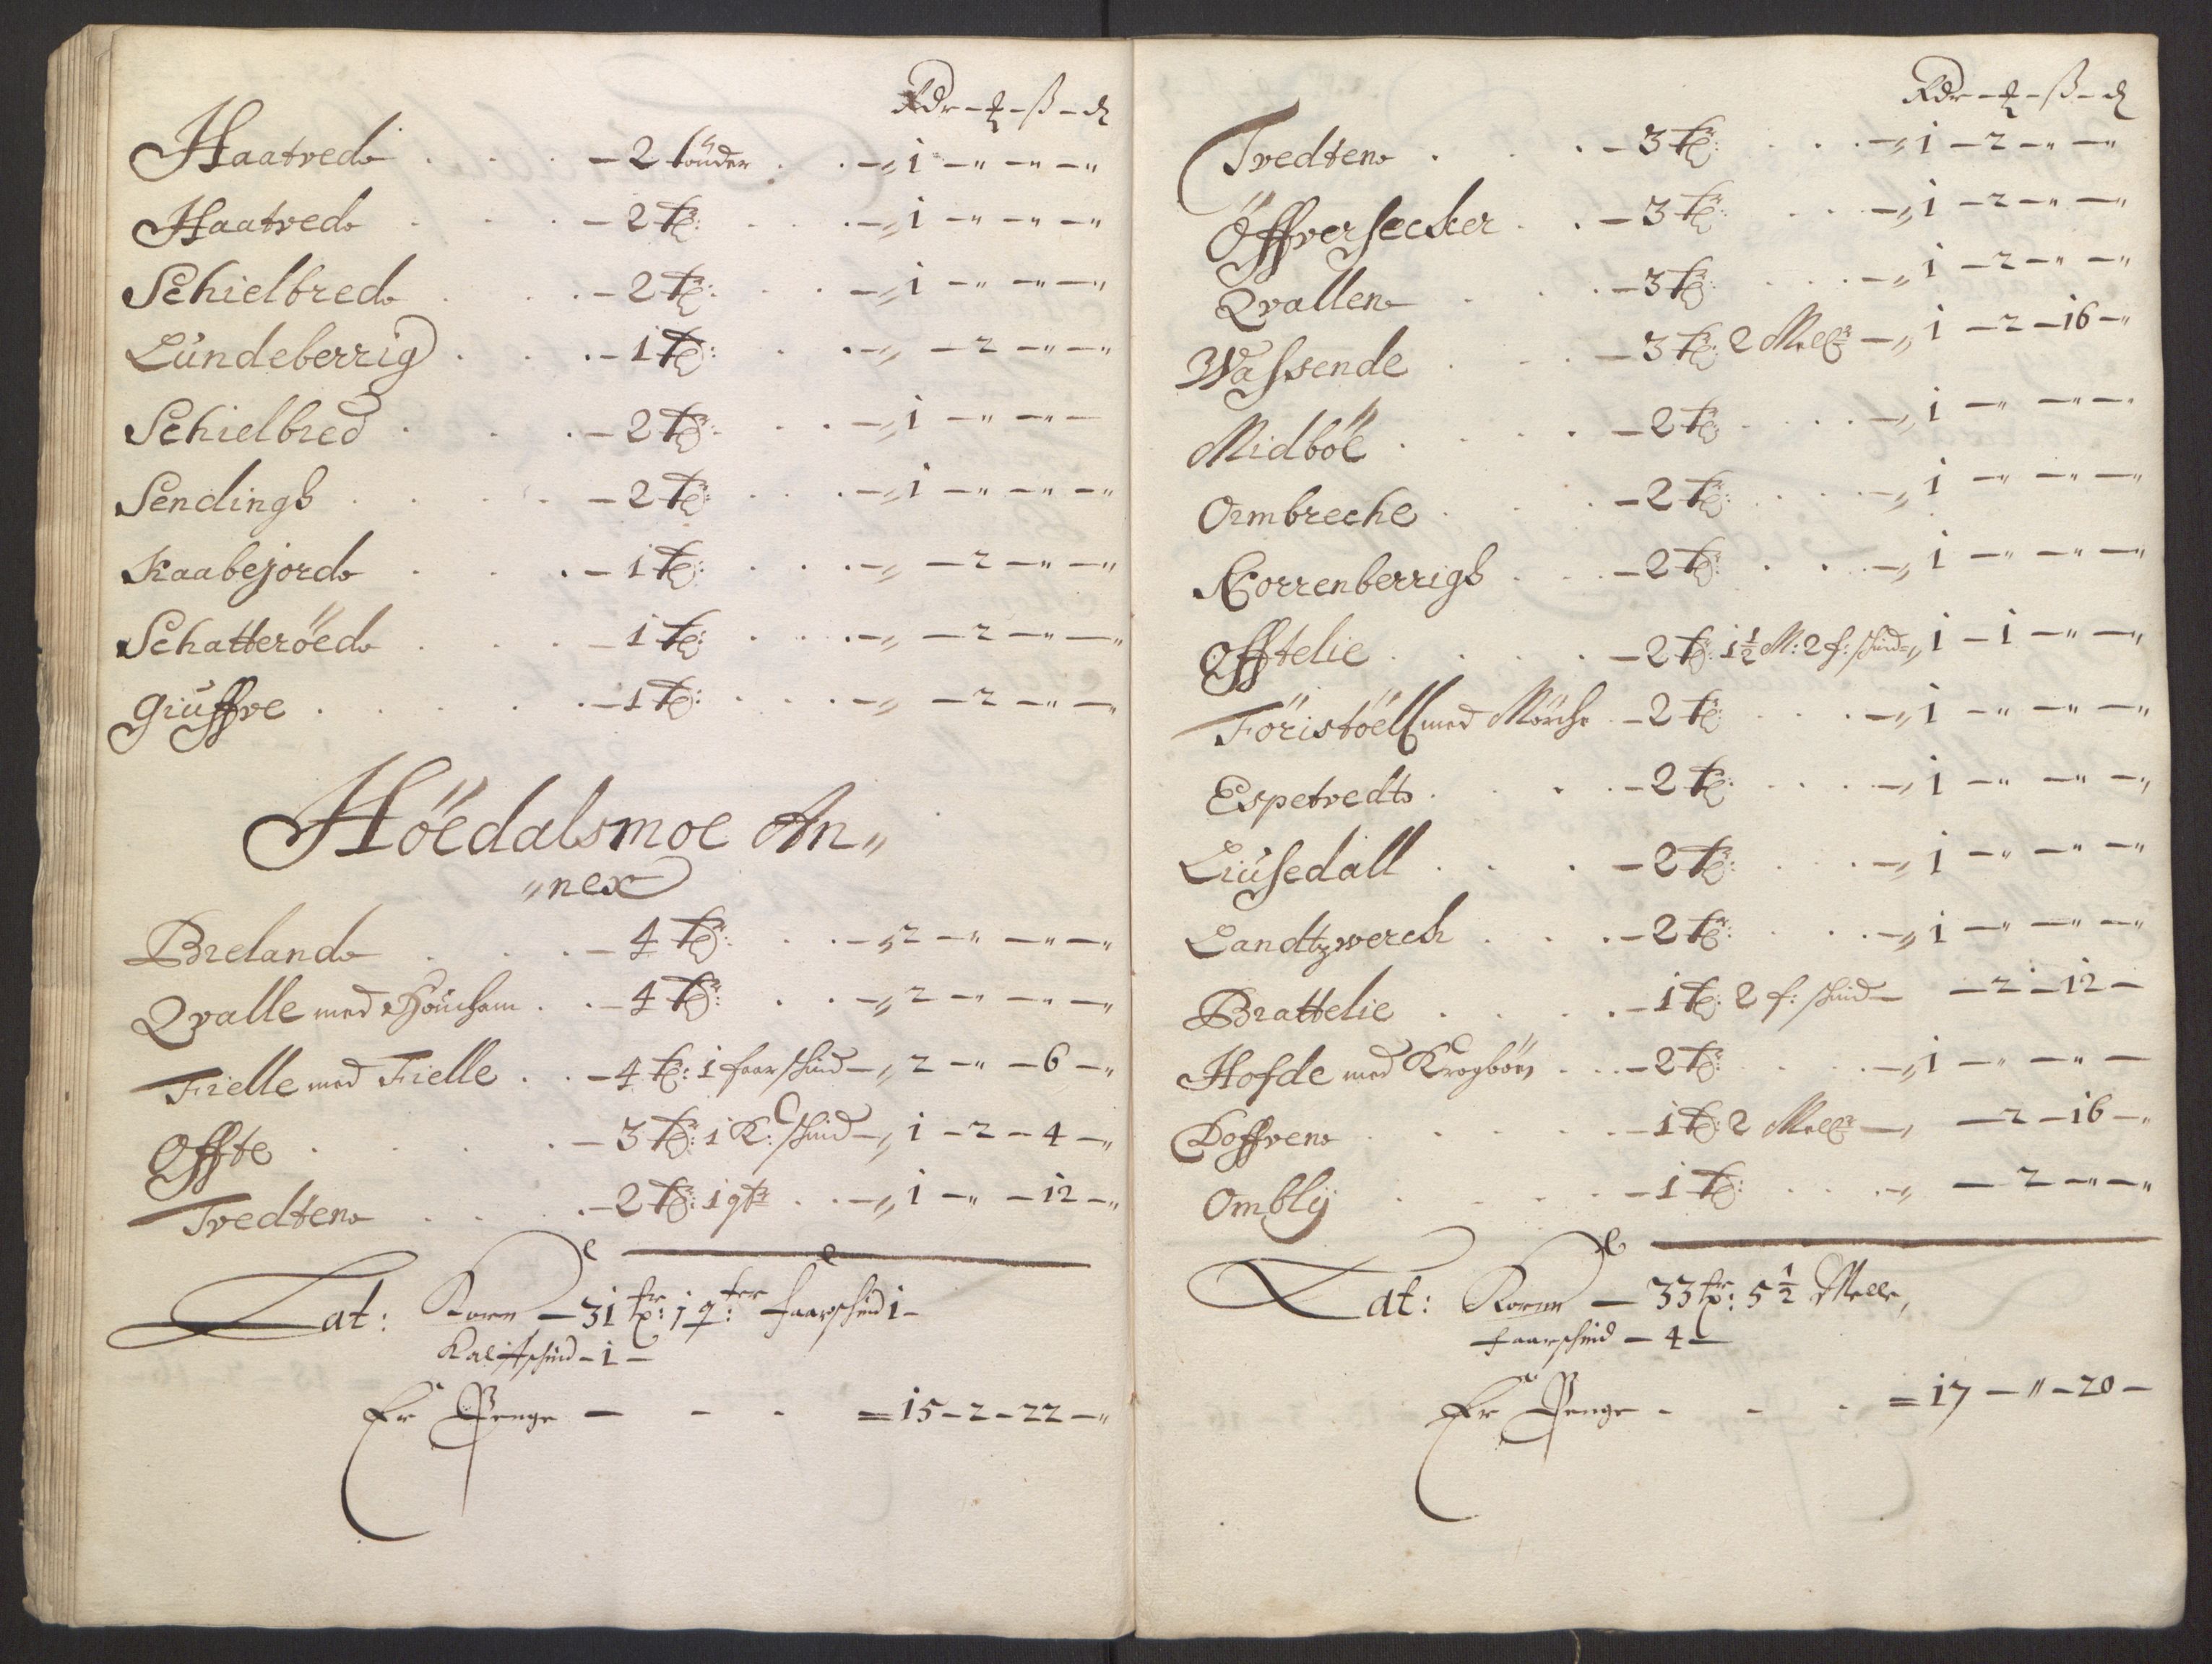 Rdr – ꝑ – ß – ₰
Haatved – 2 tönder – „ 1 – „ – „ – „
Haatved – 2 tr: – „ 1 – „ – „ – „
Schielbred – 2 tr: – „ 1 – „ – „ – „
Lundeberrig – 1 tr: – „ – 2 – „ – „
Schielbred – 2 tr: – „ 1 – „ – „ –
Sendingb – 2 tr: – „ 1 – „ – „ – „
Kaabejord – 1 tr: – „ – 2 – „ – „
Schatteröed – 1 tr: – „ – 2 – „ – „
Giuffve – 1 tr: – „ – 2 – „ – „
Höedalsmoe An„
„nex
Breland – 4 tr: – „ 2 – „ – „ – „
Qvalle med – 4 tr: – „ 2 – „ – „ – „
Fielle med Fielle – 4 tr: 1 faarschind – „ 2 – „ – 6 – „
Offte – 3 tr: 1 K: schind – „ 1 – 2 – 4 – „
Tvedten – 2 tr: 1 qtr – „ 1 – „ – 12 – „
Lat: Korn – 31 tr: 1 q:ter faarschind 1 –
Kalfschind – 1 –
Er Penge – – – = 15 – 2 – 22 – „
Rdr – ꝑ – ß – ₰
Tvedten – 3 tr: – „ 1 – 2 – „ – „
Öffversecker – 3 tr: – „ 1 – 2 – „ – „
Qvallen – 3 tr: – „ 1 – 2 – „ – „
Wassende – 3 tr: 2 Meller – „ 1 – 2 – 16 – „
Midböe – 2 tr: – „ 1 – „ – „ – „
Ormbreche – 2 tr: – „ 1 – „ – „ – „
Korrenberrigb – 2 tr: – „ 1 – „ – „ – „
Offtelie – 2 tr: 1½ M: 2 f: schind – „ 1 – 1 – „ – „
Föristöell med Mörche – 2 tr: – „ 1 – „ – „ – „
Espetvedt – 2 tr: – „ 1 – „ – „ – „
Liusedall – 2 tr: – „ 1 – „ – „ – „
Landtzverch – 2 tr: – „ 1 – „ – „ – „
Brattelie – 1 tr: 2 f: schind – – 2 – 12 –
Hofde med Krogböen – 2 tr: – „ 1 – „ – „ –
Doffven – 1 tr: 2 Meller – „ – 2 – 16 – „
Ombly – 1 tr: – „ – 2 – „ – „
Lat: Korn – 33 tr: 5½ Melle,
faarschind – 4 –
Er Penge – – – = 17 – „ – 20 –